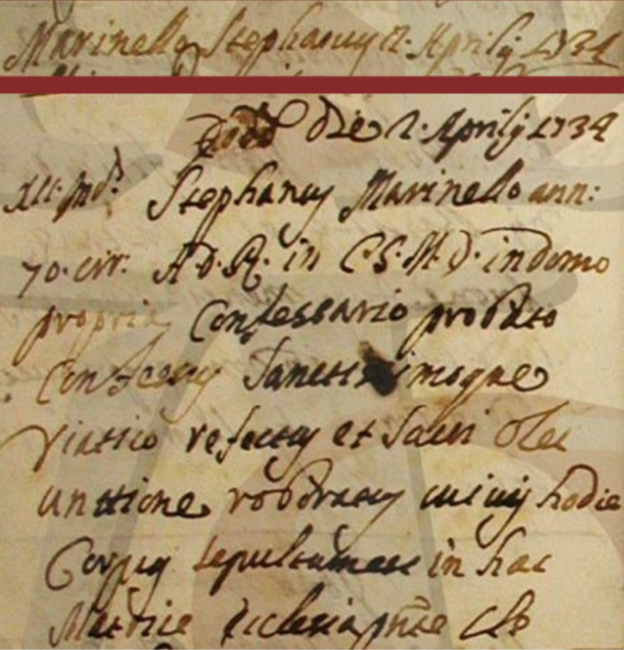 Marinello Stephanus 2. Aprilis 1734
Eodd Die 2. Aprilis 1734
XII. Ind. Stephanus Marinello ann:
70. cir: A D. R. in C. S. M. D. in domo
propria Confessario probato
Confessus Sanctissimoque
Viatico refectus et Sacri Olei
Unctione roboratus cuius hodie
Corpus sepultum est in hac
Matrice Ecclesia pnte Clo